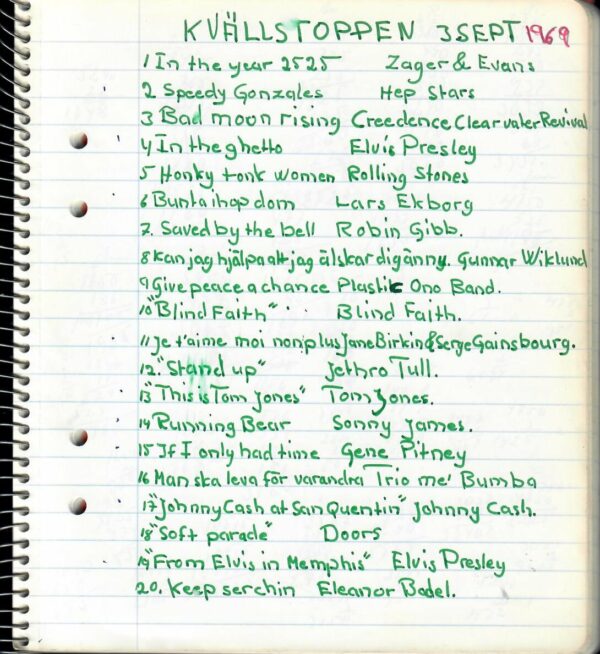 KVÄLLSTOPPEN 3 SEPT 1969
1 In the year 2525 Zager & Evans
2 Speedy Gonzales Hep Stars
3 Bad moon rising Creedence Clearwater Revival
4 In the ghetto Elvis Presley
5 Honky tonk women Rolling Stones
6 Bunta ihop dom Lars Ekborg
7. Saved by the bell Robin Gibb.
8 Kan jag hjälpa att jag älskar dig änny. Gunnar Wiklund
9 Give peace a chance Plastic Ono Band.
10 "Blind Faith" Blind Faith.
11 Je t'aime moi non plus Jane Birkin & Serge Gainsbourg.
12. "Stand up" Jethro Tull.
13 "This is Tom Jones" Tom Jones.
14 Running Bear Sonny James.
15 If I only had time Gene Pitney
16 Man ska leva för varandra Trio me' Bumba
17 "Johnny Cash at San Quentin" Johnny Cash.
18 "Soft parade" Doors
19 "From Elvis in Memphis" Elvis Presley
20. Keep serchin Eleanor Bodel.